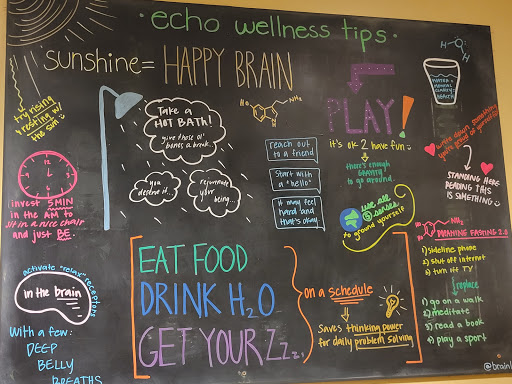 · echo wellness tips ·
sunshine = HAPPY BRAIN
try rising
& resting w/
the sun
invest 5MIN
in the AM to
sit in a nice chair
and just BE.
activate "relax" receptors
in the brain
With a few:
DEEP
BELLY
BREATHS
Take a
HOT BATH!
give those ol'
bones a break...
you
deserve it...
rejuvenate
your
being...
HO
NH2
reach out
to a friend
Start with
a "hello"
it may feel
hard and
that's okay.
PLAY!
it's ok 2 have fun
there's enough
GRAVITY
to go around.
use all
5 senses
to ground yourself
EAT FOOD
DRINK H2O
GET YOUR Zzz...
on a schedule
Saves thinking power
for daily problem solving
H O H
WATER =
MENTAL
CLARITY +
HEALTH
write down something
you're proud of yourself
STANDING HERE
READING THIS
IS SOMETHING
HO
HO
NH2
DOPAMINE FASTING 2.0
1) sideline phone
2) shut off internet
3) turn off TV
replace
1) go on a walk
2) meditate
3) read a book
4) play a sport